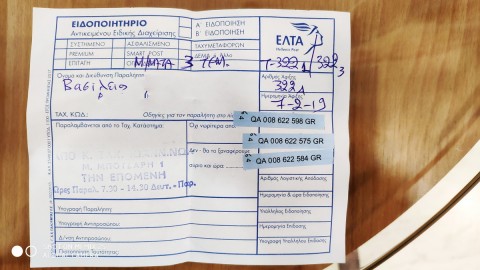 ΕΙΔΟΠΟΙΗΤΗΡΙΟ
Αντικειμένου Ειδικής Διαχείρισης
Α΄ ΕΙΔΟΠΟΙΗΣΗ
Β΄ ΕΙΔΟΠΟΙΗΣΗ
ΕΛΤΑ
Hellenic Post
ΣΥΣΤΗΜΕΝΟ
ΑΣΦΑΛΙΣΜΕΝΟ
ΤΑΧΥΜΕΤΑΦΟΡΩΝ
PREMIUM
SMART POST
ΕΠΙΤΑΓΗ
3 ΤΕΜ.
Ονομα και Διεύθυνση Παραλήπτη
Βασίλειο
Αριθμός Άφιξης
322
Ημερομηνία Άφιξης
7-2-19
ΤΑΧ. ΚΩΔ.:
Οδηγίες για τον παραλήπτη στο
64 QA 008 622 598 GR
Παραλαμβάνεται από το Ταχ. Κατάστημα:
Όχι νωρίτερα από
64 QA 008 622 575 GR
64 QA 008 622 584 GR
Δεν - θα το ξαναφέρουμε
αύριο και ώρα
ΤΗΝ ΕΠΟΜΕΝΗ
Ώρες Παραλ. 7.30 - 14.30 Δευτ. - Παρ.
Αριθμός Λογιστικής Απόδοσης
Ημερομηνία & ώρα Ειδοποίησης
Υπογραφή Παραλήπτη:
Υπάλληλος Ειδοποίησης
Υπογραφή Αντιπροσώπου:
Ημερομηνία & ώρα Επίδοσης
Δ/νση Αντιπροσώπου:
Υπάλληλος Επίδοσης
Πιστοποιητικό Ταυτότητας:
Υπογραφή Υπαλλήλου Επίδοσης